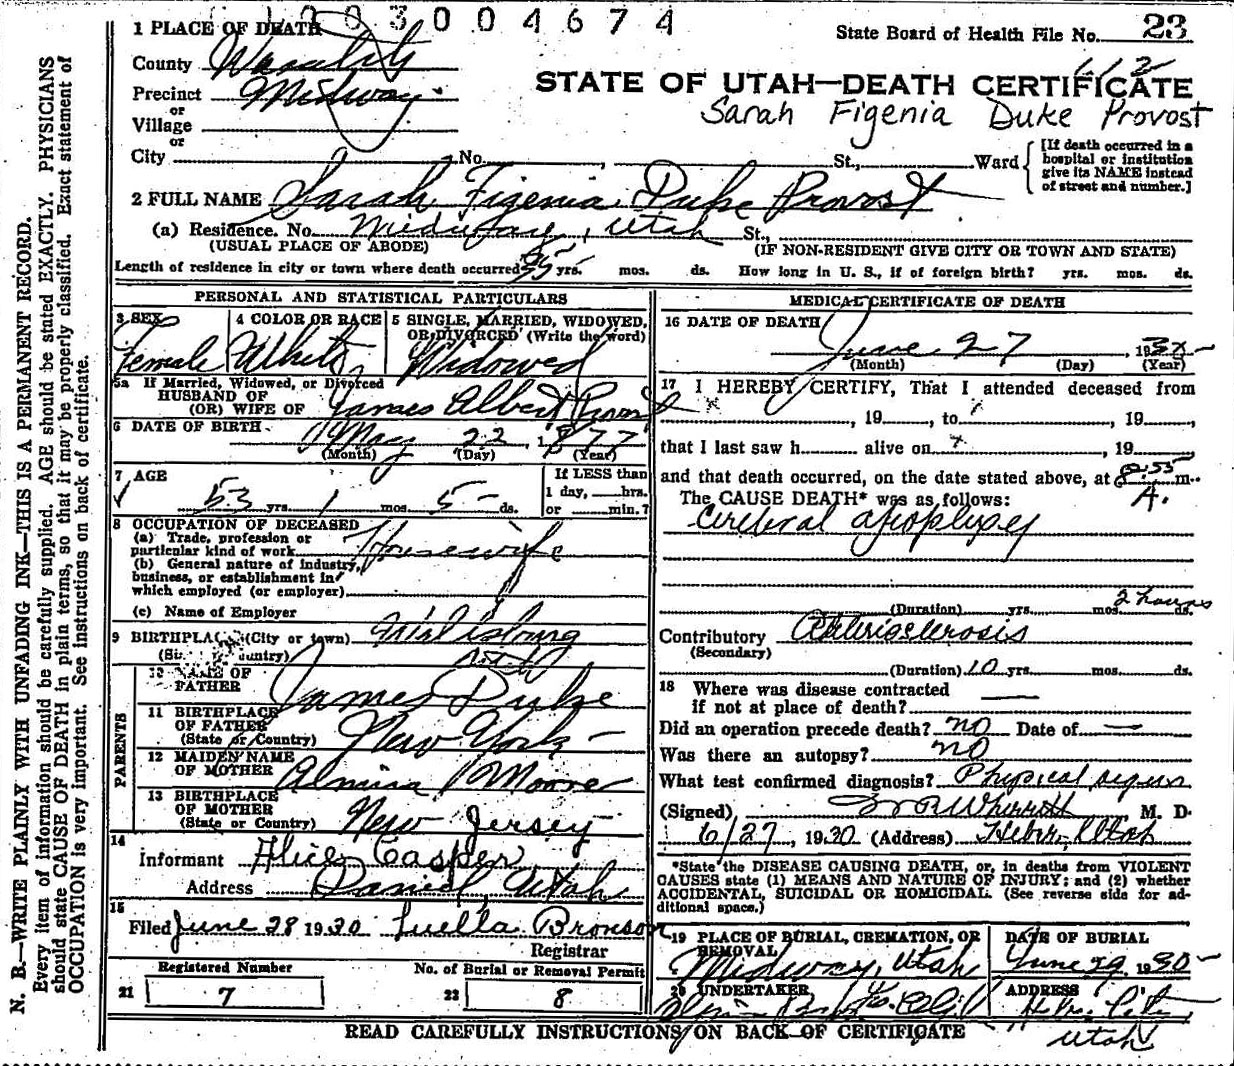 1003004674
1 PLACE OF DEATH
State Board of Health File No. 23
County Wasatch
112
Precinct Midway
STATE OF UTAH—DEATH CERTIFICATE
or
Village
Sarah Figenia Duke Provost
or
City No. , St., Ward
[If death occurred in a
hospital or institution
give its NAME instead
of street and number.]
2 FULL NAME Sarah Figenia Duke Provost
(a) Residence. No. Midway, Utah St.,
(USUAL PLACE OF ABODE) (IF NON-RESIDENT GIVE CITY OR TOWN AND STATE)
Length of residence in city or town where death occurred 35 yrs. mos. ds. How long in U. S., if of foreign birth? yrs. mos. ds.
PERSONAL AND STATISTICAL PARTICULARS
3 SEX
Female
4 COLOR OR RACE
White
5 SINGLE, MARRIED, WIDOWED,
OR DIVORCED (Write the word)
Widowed
5a If Married, Widowed, or Divorced
HUSBAND OF
(OR) WIFE OF James Albert Provost
6 DATE OF BIRTH May 22, 1877
(Month) (Day) (Year)
7 AGE
53 yrs. 1 mos. 5 ds.
If LESS than
1 day, hrs.
or min.?
8 OCCUPATION OF DECEASED
(a) Trade, profession or
particular kind of work Housewife
(b) General nature of industry,
business, or establishment in
which employed (or employer)
(c) Name of Employer
9 BIRTHPLACE (City or town)
(State or Country) Utah
10 NAME OF
FATHER James Duke
11 BIRTHPLACE
OF FATHER
(State or Country) New York
12 MAIDEN NAME
OF MOTHER Almina Moore
13 BIRTHPLACE
OF MOTHER
(State or Country) New Jersey
PARENTS
14
Informant Alice Casper
Address Daniel, Utah
15
Filed June 28 1930 Luella Bronson
Registrar
Registered Number
21 7
No. of Burial or Removal Permit
22 8
MEDICAL CERTIFICATE OF DEATH
16 DATE OF DEATH
June 27, 1930
(Month) (Day) (Year)
17 I HEREBY CERTIFY, That I attended deceased from
x , 19 , to x , 19 ,
that I last saw h alive on x , 19
and that death occurred, on the date stated above, at 8:55 m.
A.
The CAUSE DEATH* was as follows:
Cerebral apoplexy
(Duration) yrs. mos. 2 hours ds.
Contributory Arteriosclerosis
(Secondary)
(Duration) 10 yrs. mos. ds.
18 Where was disease contracted
if not at place of death? —
Did an operation precede death? no Date of —
Was there an autopsy? no
What test confirmed diagnosis? Physical signs
(Signed) Wherritt M. D.
6/27, 1930 (Address) Heber, Utah
*State the DISEASE CAUSING DEATH, or, in deaths from VIOLENT
CAUSES state (1) MEANS AND NATURE OF INJURY; and (2) whether
ACCIDENTAL, SUICIDAL OR HOMICIDAL. (See reverse side for ad-
ditional space.)
19 PLACE OF BURIAL, CREMATION, OR
REMOVAL
Midway, Utah
DATE OF BURIAL
June 29, 1930
20 UNDERTAKER
ADDRESS
Heber City
Utah
READ CAREFULLY INSTRUCTIONS ON BACK OF CERTIFICATE
N. B.—WRITE PLAINLY WITH UNFADING INK—THIS IS A PERMANENT RECORD.
Every item of information should be carefully supplied. AGE should be stated EXACTLY. PHYSICIANS
should state CAUSE OF DEATH in plain terms, so that it may be properly classified. Exact statement of
OCCUPATION is very important. See instructions on back of certificate.